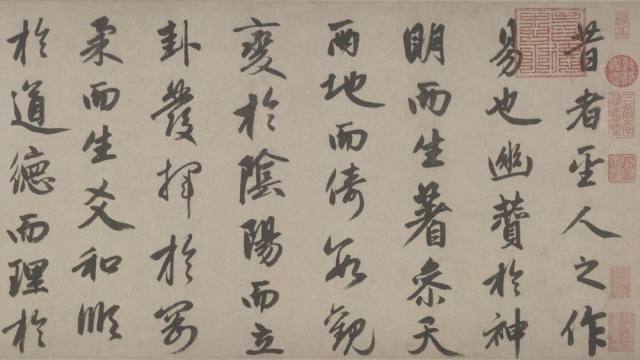 昔者聖人之作
易也幽贊於神
明而生蓍參天
兩地而倚數觀
變於陰陽而立
卦發揮於剛
柔而生爻和順
於道德而理於